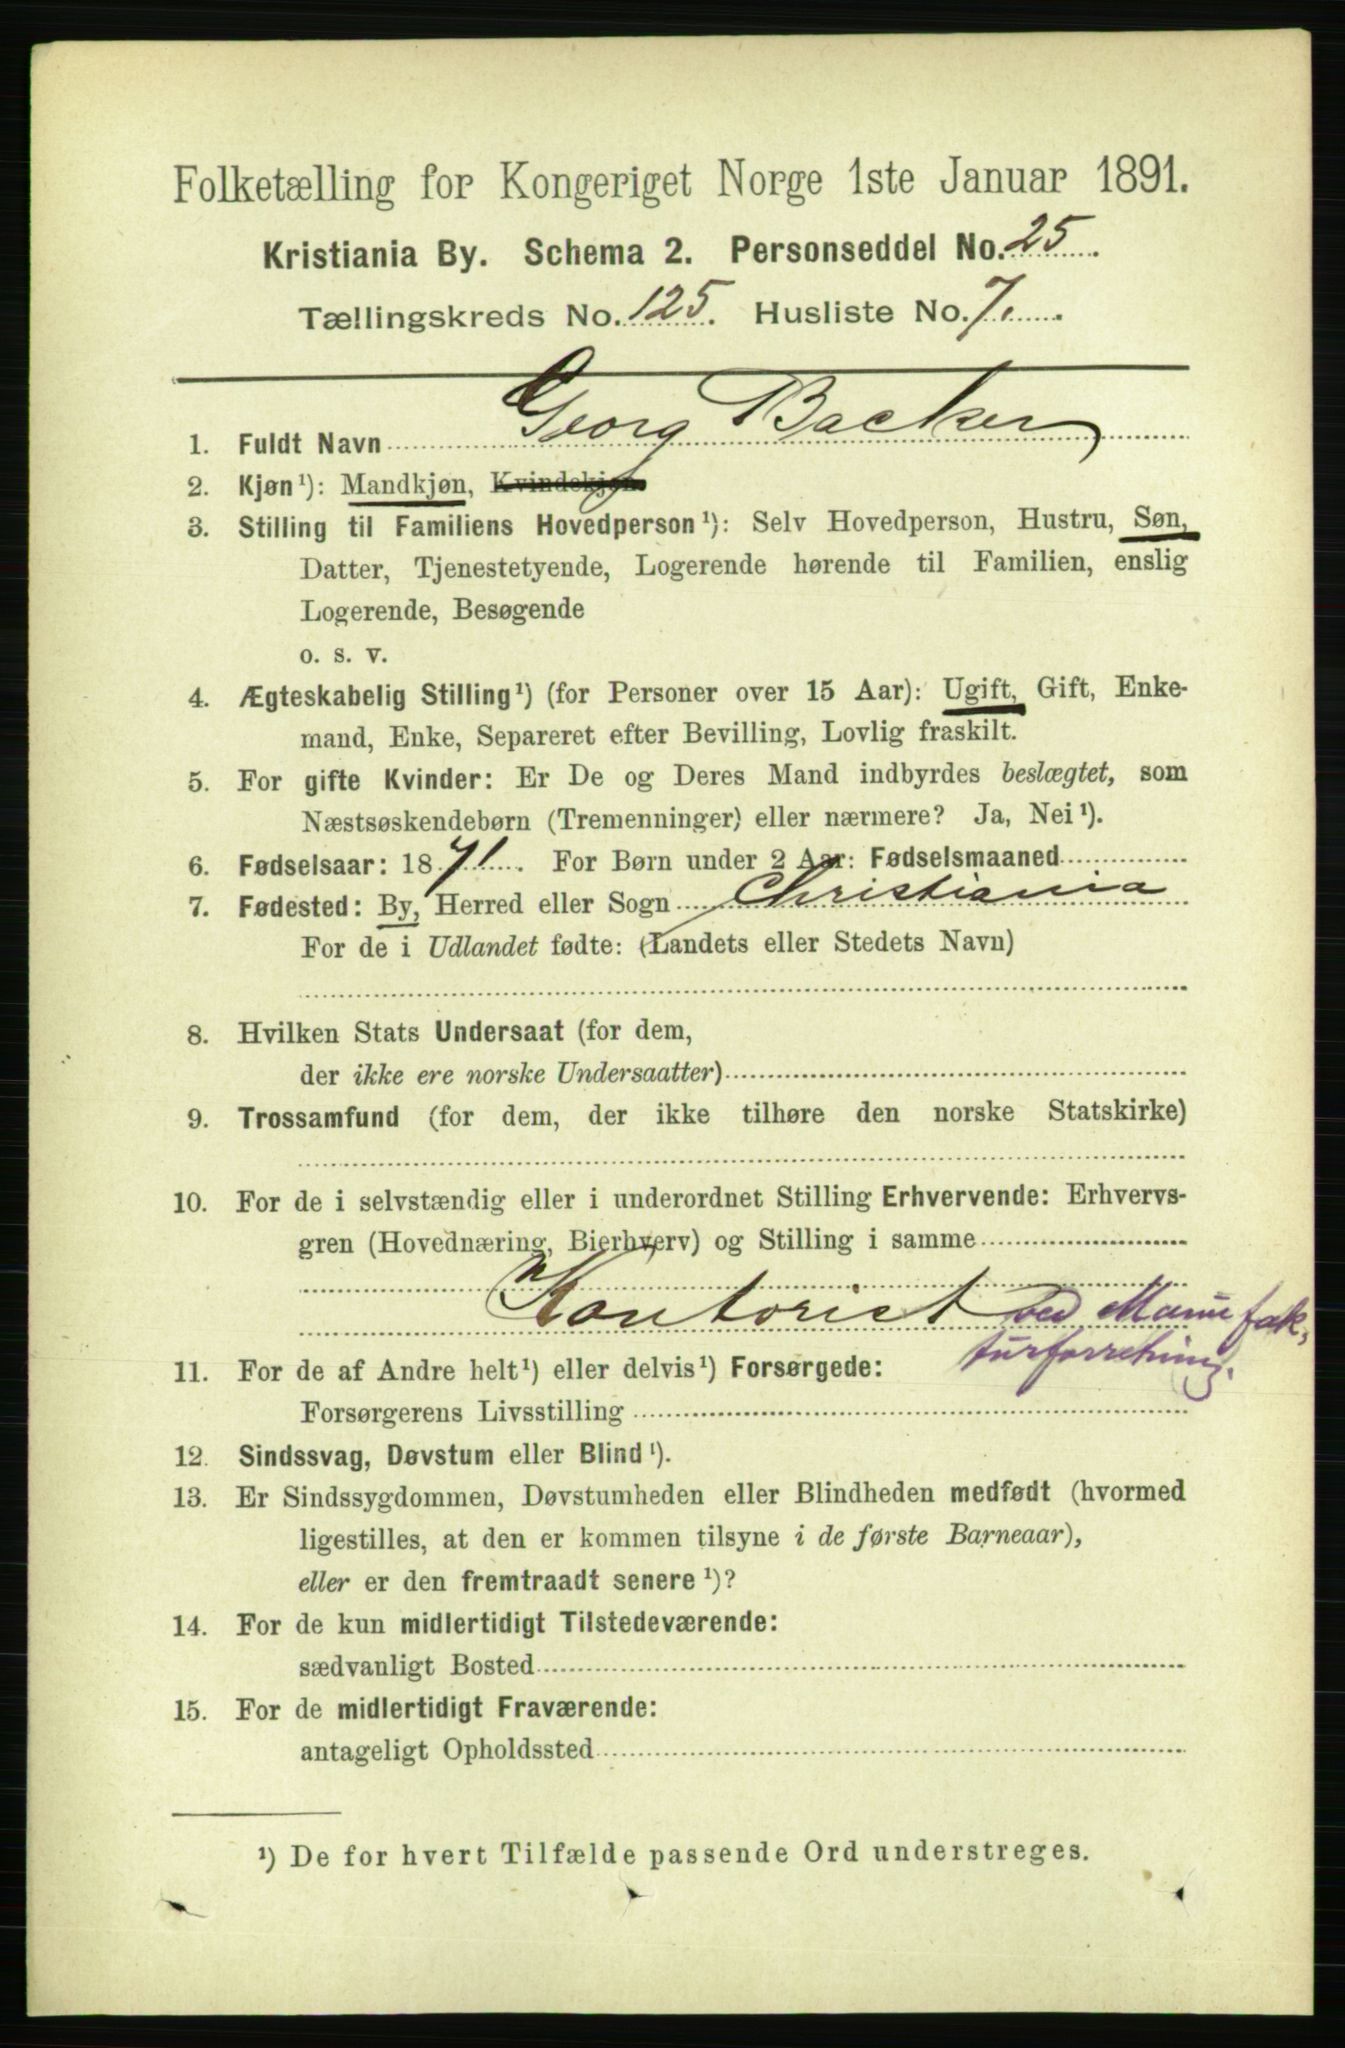 Folketælling for Kongeriget Norge 1ste Januar 1891.
Kristiania By. Schema 2. Personseddel No. 25
Tællingskreds No. 125. Husliste No. 7.
1. Fuldt Navn Georg Backer
2. Kjøn¹): Mandkjøn, Kvindekjøn
3. Stilling til Familiens Hovedperson¹): Selv Hovedperson, Hustru, Søn,
Datter, Tjenestetyende, Logerende hørende til Familien, enslig
Logerende, Besøgende
o. s. v.
4. Ægteskabelig Stilling¹) (for Personer over 15 Aar): Ugift, Gift, Enke-
mand, Enke, Separeret efter Bevilling, Lovlig fraskilt.
5. For gifte Kvinder: Er De og Deres Mand indbyrdes beslægtet, som
Næstsøskendebørn (Tremenninger) eller nærmere? Ja, Nei¹).
6. Fødselsaar: 1871. For Børn under 2 Aar: Fødselsmaaned
7. Fødested: By, Herred eller Sogn Christiania
For de i Udlandet fødte: (Landets eller Stedets Navn)
8. Hvilken Stats Undersaat (for dem,
der ikke ere norske Undersaatter)
9. Trossamfund (for dem, der ikke tilhøre den norske Statskirke)
10. For de i selvstændig eller i underordnet Stilling Erhvervende: Erhvervs-
gren (Hovednæring, Bierhverv) og Stilling i samme
Kontorist ved Manufak-
turforretning.
11. For de af Andre helt¹) eller delvis¹) Forsørgede:
Forsørgerens Livsstilling
12. Sindssvag, Døvstum eller Blind¹).
13. Er Sindssygdommen, Døvstumheden eller Blindheden medfødt (hvormed
ligestilles, at den er kommen tilsyne i de første Barneaar),
eller er den fremtraadt senere¹)?
14. For de kun midlertidigt Tilstedeværende:
sædvanligt Bosted
15. For de midlertidigt Fraværende:
antageligt Opholdssted
¹) De for hvert Tilfælde passende Ord understreges.